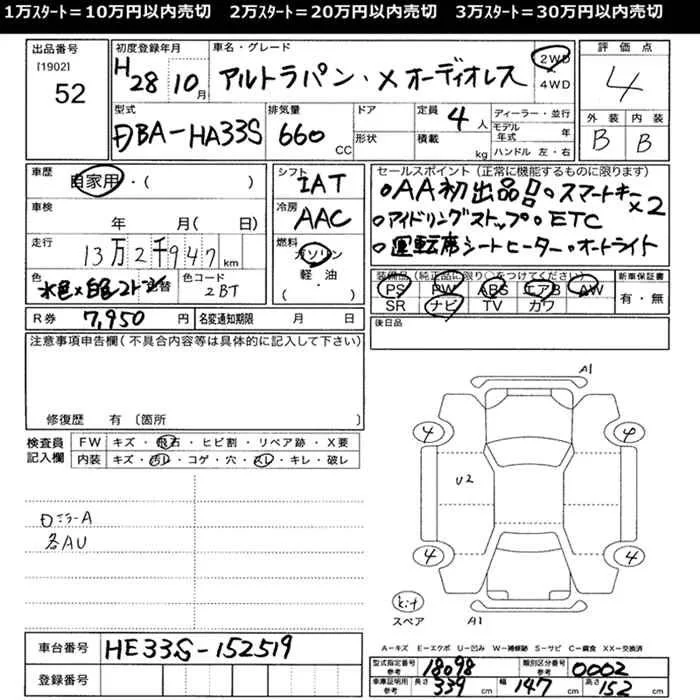 1万ｽﾀｰﾄ＝10万円以内売切　2万ｽﾀｰﾄ＝20万円以内売切　3万ｽﾀｰﾄ＝30万円以内売切
出品番号
[1902]
52
初度登録年月
H28 10月
車名・グレード
アルトラパン・X オーディオレス
2WD
4WD
評価点
4
外装 内装
B B
型式
DBA-HA33S
排気量
660 CC
ドア
形状
定員 4 人
積載 kg
ディーラー・並行
モデル年式 年
ハンドル 左・右
車歴
自家用・( )
車検
年 月( 日)
走行
13万2千947 km
色
水色×白色2トン
替
色コード
2BT
シフト
IAT
冷房
AAC
燃料
ガソリン
軽・油
( ・ )
セールスポイント (正常に機能するものに限ります)
・AA初出品 ・スマートキー×2
・アイドリングストップ ・ETC
・運転席シートヒーター ・オートライト
装備品 (純正品に限り○をつけてください)
PS PW ABS エアB AW
SR ナビ TV カワ
新車保証書
有・無
R券 7,950 円 名変通知期限 月 日
後日品
注意事項申告欄 (不具合内容等は具体的に記入して下さい)
修復歴 有 〔箇所 〕
検査員
記入欄
FW キズ・飛石・ヒビ割・リペア跡・X要
内装 キズ・汚レ・コゲ・穴・スレ・キレ・破レ
ロニラーA
各AU
A1
4 4
U2
4 4
スペア
A1
A－キズ E－エクボ U－凹み W－補修跡 S－サビ C－腐食 XX－交換済
車台番号 HE33S-152519
登録番号
型式指定番号 参考 18098 類別区分番号 参考 0002
車庫証明用 参考 長さ 339 cm 幅 147 cm 高さ 152 cm